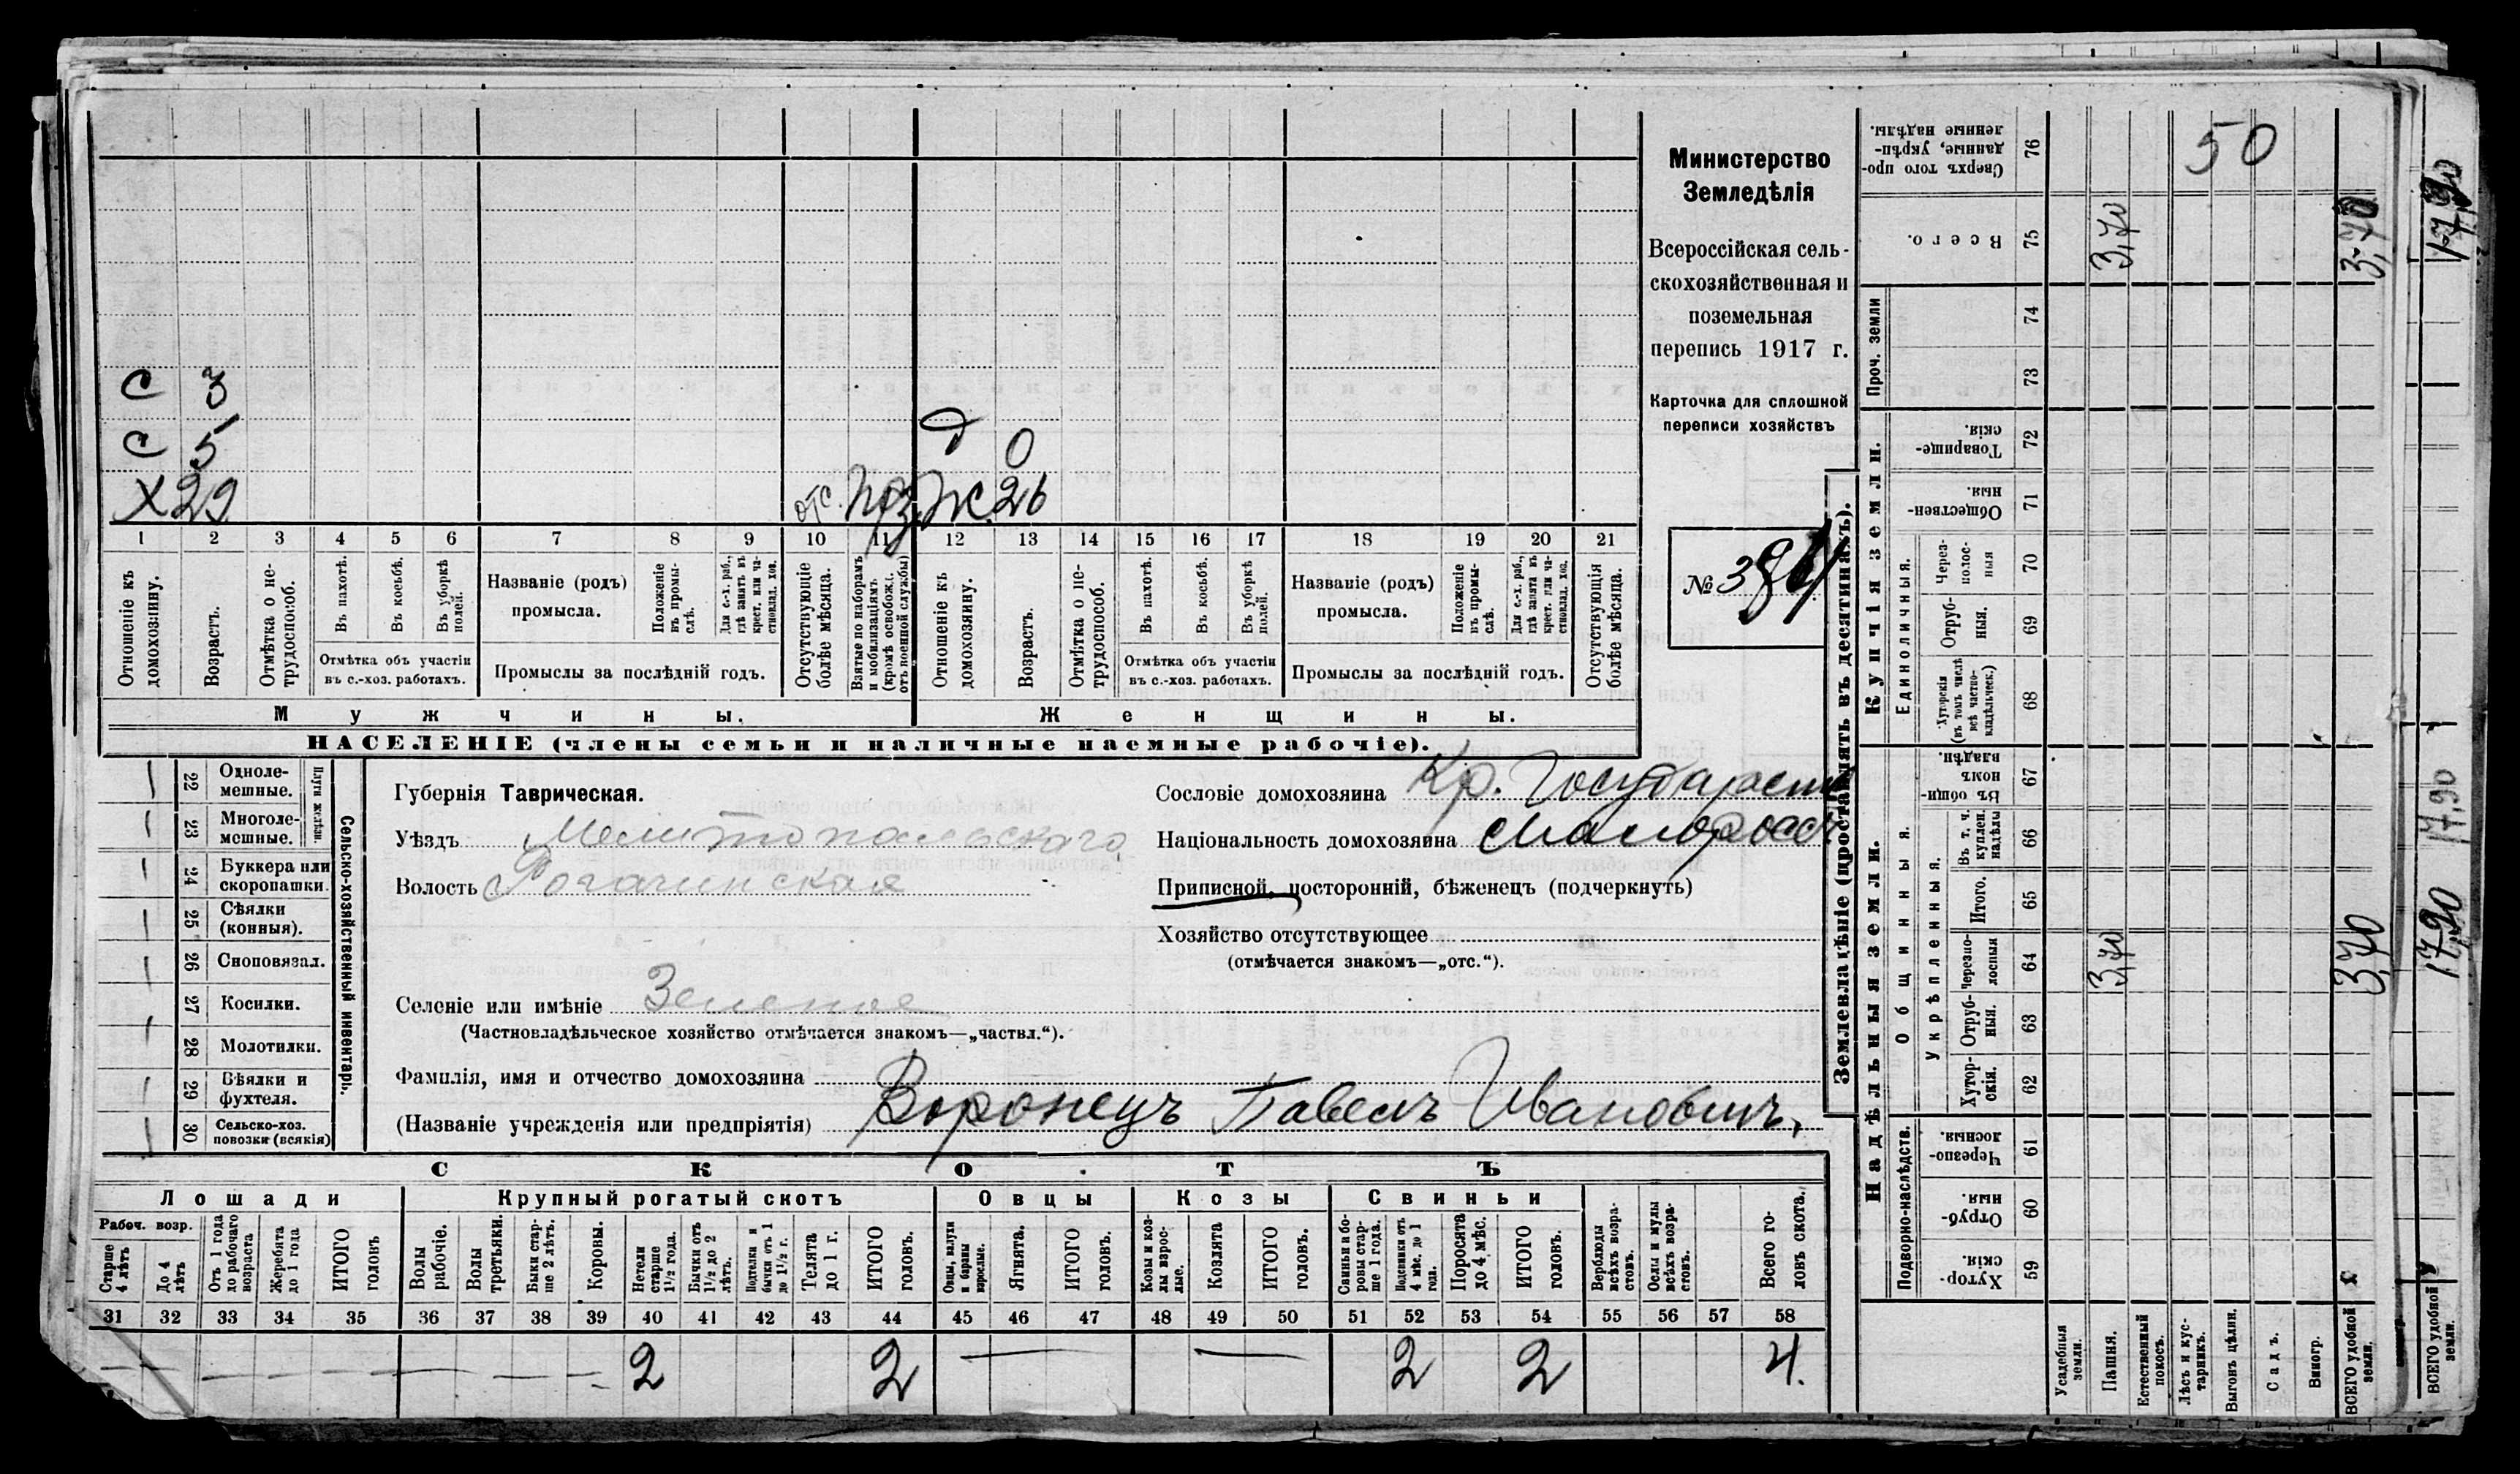 Министерство
Земледѣлія
Всероссійская сель-
скохозяйственная и
поземельная
перепись 1917 г.
Карточка для сплошной
переписи хозяйствъ
№
С 3
С 5
Х 29 отс.
д 0
Ж. 26
1 2 3 4 5 6 7 8 9 10 11 12 13 14 15 16 17 18 19 20 21
Отношеніе къ домохозяину.
Возрастъ.
Отмѣтка о не-трудоспособ.
Въ пахотѣ.
Въ косьбѣ.
Въ уборкѣ полей.
Отмѣтка объ участіи
въ с.-хоз. работахъ.
Названіе (родъ)
промысла.
Положеніе въ промы-слѣ.
Для с.-х. раб., гдѣ занятъ въ крест. или ча-стновлад. хоз.
Промыслы за послѣдній годъ.
Отсутствующіе болѣе мѣсяца.
Взятые по наборамъ и мобилизаціямъ (кромѣ освобожд. отъ военной службы)
Отношеніе къ домохозяину.
Возрастъ.
Отмѣтка о не-трудоспособ.
Въ пахотѣ.
Въ косьбѣ.
Въ уборкѣ полей.
Отмѣтка объ участіи
въ с.-хоз. работахъ.
Названіе (родъ)
промысла.
Положеніе въ промы-слѣ.
Для с.-х. раб., гдѣ занятъ въ крест. или ча-стновлад. хоз.
Промыслы за послѣдній годъ.
Отсутствующія болѣе мѣсяца.
Мужчины.
Женщины.
НАСЕЛЕНІЕ (члены семьи и наличные наемные рабочіе).
Сельско-хозяйственный инвентарь.
Плуги желѣзн.
22 Однолемешные.
23 Многолемешные.
24 Буккера или скоропашки.
25 Сѣялки (конныя).
26 Сноповязал.
27 Косилки.
28 Молотилки.
29 Вѣялки и фухтеля.
30 Сельско-хоз. повозки (всякія)
Губернія Таврическая.
Уѣздъ Мелитопольскаго
Волость Рогачинская
Селеніе или имѣніе Зеленое
(Частновладѣльческое хозяйство отмѣчается знакомъ—„частвл.“).
Фамилія, имя и отчество домохозяина
(Названіе учрежденія или предпріятія) Воронецъ Павелъ Ивановичъ,
Сословіе домохозяина Кр. Государств
Національность домохозяина Малоросс
Приписной, посторонній, бѣженецъ (подчеркнуть)
Хозяйство отсутствующее
(отмѣчается знакомъ—„отс.“).
СКОТЪ
Лошади
Крупный рогатый скотъ
Овцы
Козы
Свиньи
Рабоч. возр.
Старше 4 лѣтъ
До 4 лѣтъ
Отъ 1 года до рабочаго возраста
Жеребята до 1 года
ИТОГО головъ
Волы рабочіе.
Волы третьяки.
Быки стар-ше 2 лѣтъ.
Коровы.
Нетели старше 1½ года.
Бычки отъ 1½ до 2 лѣтъ.
Подтелки и бычки отъ 1 до 1½ г.
Телята до 1 г.
ИТОГО головъ.
Овцы, валухи и бараны взрослые.
Ягнята.
ИТОГО головъ.
Козы и коз-лы взрос-лые.
Козлята
ИТОГО головъ.
Свиньи и бо-ровы стар-ше 1 года.
Подсвинки отъ 4 мѣс. до 1 года.
Поросята до 4 мѣс.
ИТОГО головъ.
Верблюды всѣхъ возра-стовъ.
Ослы и мулы всѣхъ возра-стовъ.
Всего го-ловъ скота.
31 32 33 34 35 36 37 38 39 40 41 42 43 44 45 46 47 48 49 50 51 52 53 54 55 56 57 58
2 2 2 2 4.
Землевладѣніе (проставлять въ десятинахъ).
Надѣльныя земли.
Купчія земли.
Проч. земли
Подворно-наслѣдств.
Общинныя.
Укрѣпленныя.
Единоличныя.
Сверхъ того про-данные, укрѣп-ленные надѣлы. 76
Всего. 75
74
73
Товарище-скія. 72
Обществен-ныя. 71
Через-полос-ныя 70
Отруб-ныя. 69
Хуторскія (въ томъ числѣ всѣ частно-владѣльческ.) 68
Въ общин-номъ владѣн. 67
Въ т. ч. куплен. надѣлы 66
Итого. 65
Черезпо-лосныя 64
Отруб-ныя. 63
Хутор-скія. 62
Черезпо-лосныя. 61
Отруб-ныя. 60
Хутор-скія. 59
Усадебныя земли.
Пашня.
Естественный покосъ.
Лѣсъ и кус-тарникъ.
Выгонъ цѣлин.
Садъ.
Виногр.
ВСЕГО удобной земли.
50
3,70
3,70
3,70
3,70
ВСЕГО удобной земли.
17,90
17,90